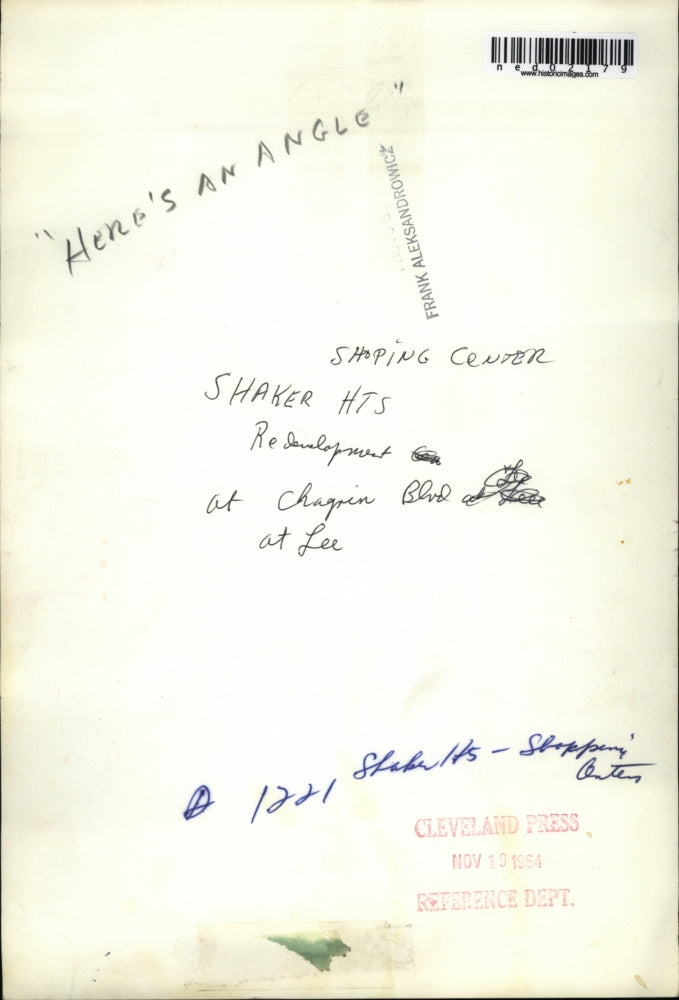 ned02179
www.historicimages.com
"HERE'S AN ANGLE"
FRANK ALEKSANDROWICZ
SHOPING CENTER
SHAKER HTS
Redevelopment
at Chagrin Blvd at Lee
at Lee
Shaker Hts - Shopping
Centers
1221
CLEVELAND PRESS
NOV 19 1964
REFERENCE DEPT.